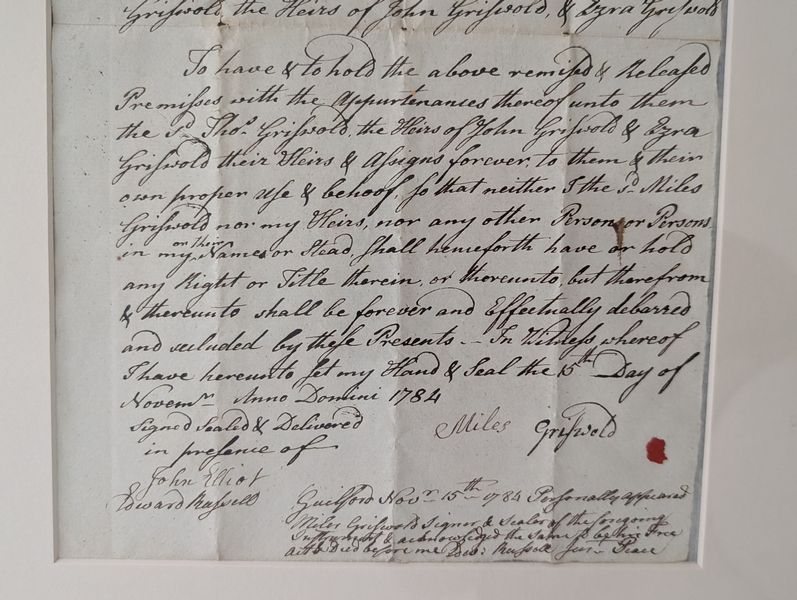 Griswold, the Heirs of John Griswold, & Ezra Griswold
To have & to hold the above remised & Released
Premisses with the Appurtenances thereof unto them
the Sd. Thos. Griswold, the Heirs of John Griswold & Ezra
Griswold their Heirs & Assigns forever, to them & their
own proper use & behoof, so that neither I the sd. Miles
Griswold nor my Heirs, nor any other Person, or Persons
or their
in my Names or Stead shall henceforth have or hold
any Right or Title therein, or thereunto, but therefrom
& thereunto shall be forever and Effectually debarred
and secluded by these Presents. — In Witness whereof
I have hereunto set my Hand & Seal the 15th Day of
Novemr. Anno Domini 1784
Signed Sealed & Delivered
in presence of
Miles Griswold
John Elliot
Edward Russell
Guilford Novr. 15th 1784 Personally appeared
Miles Griswold Signer & Sealer of the foregoing
Instrument & acknowledged the same to be his Free
act & Deed before me Edwd: Russell Jus: Peace